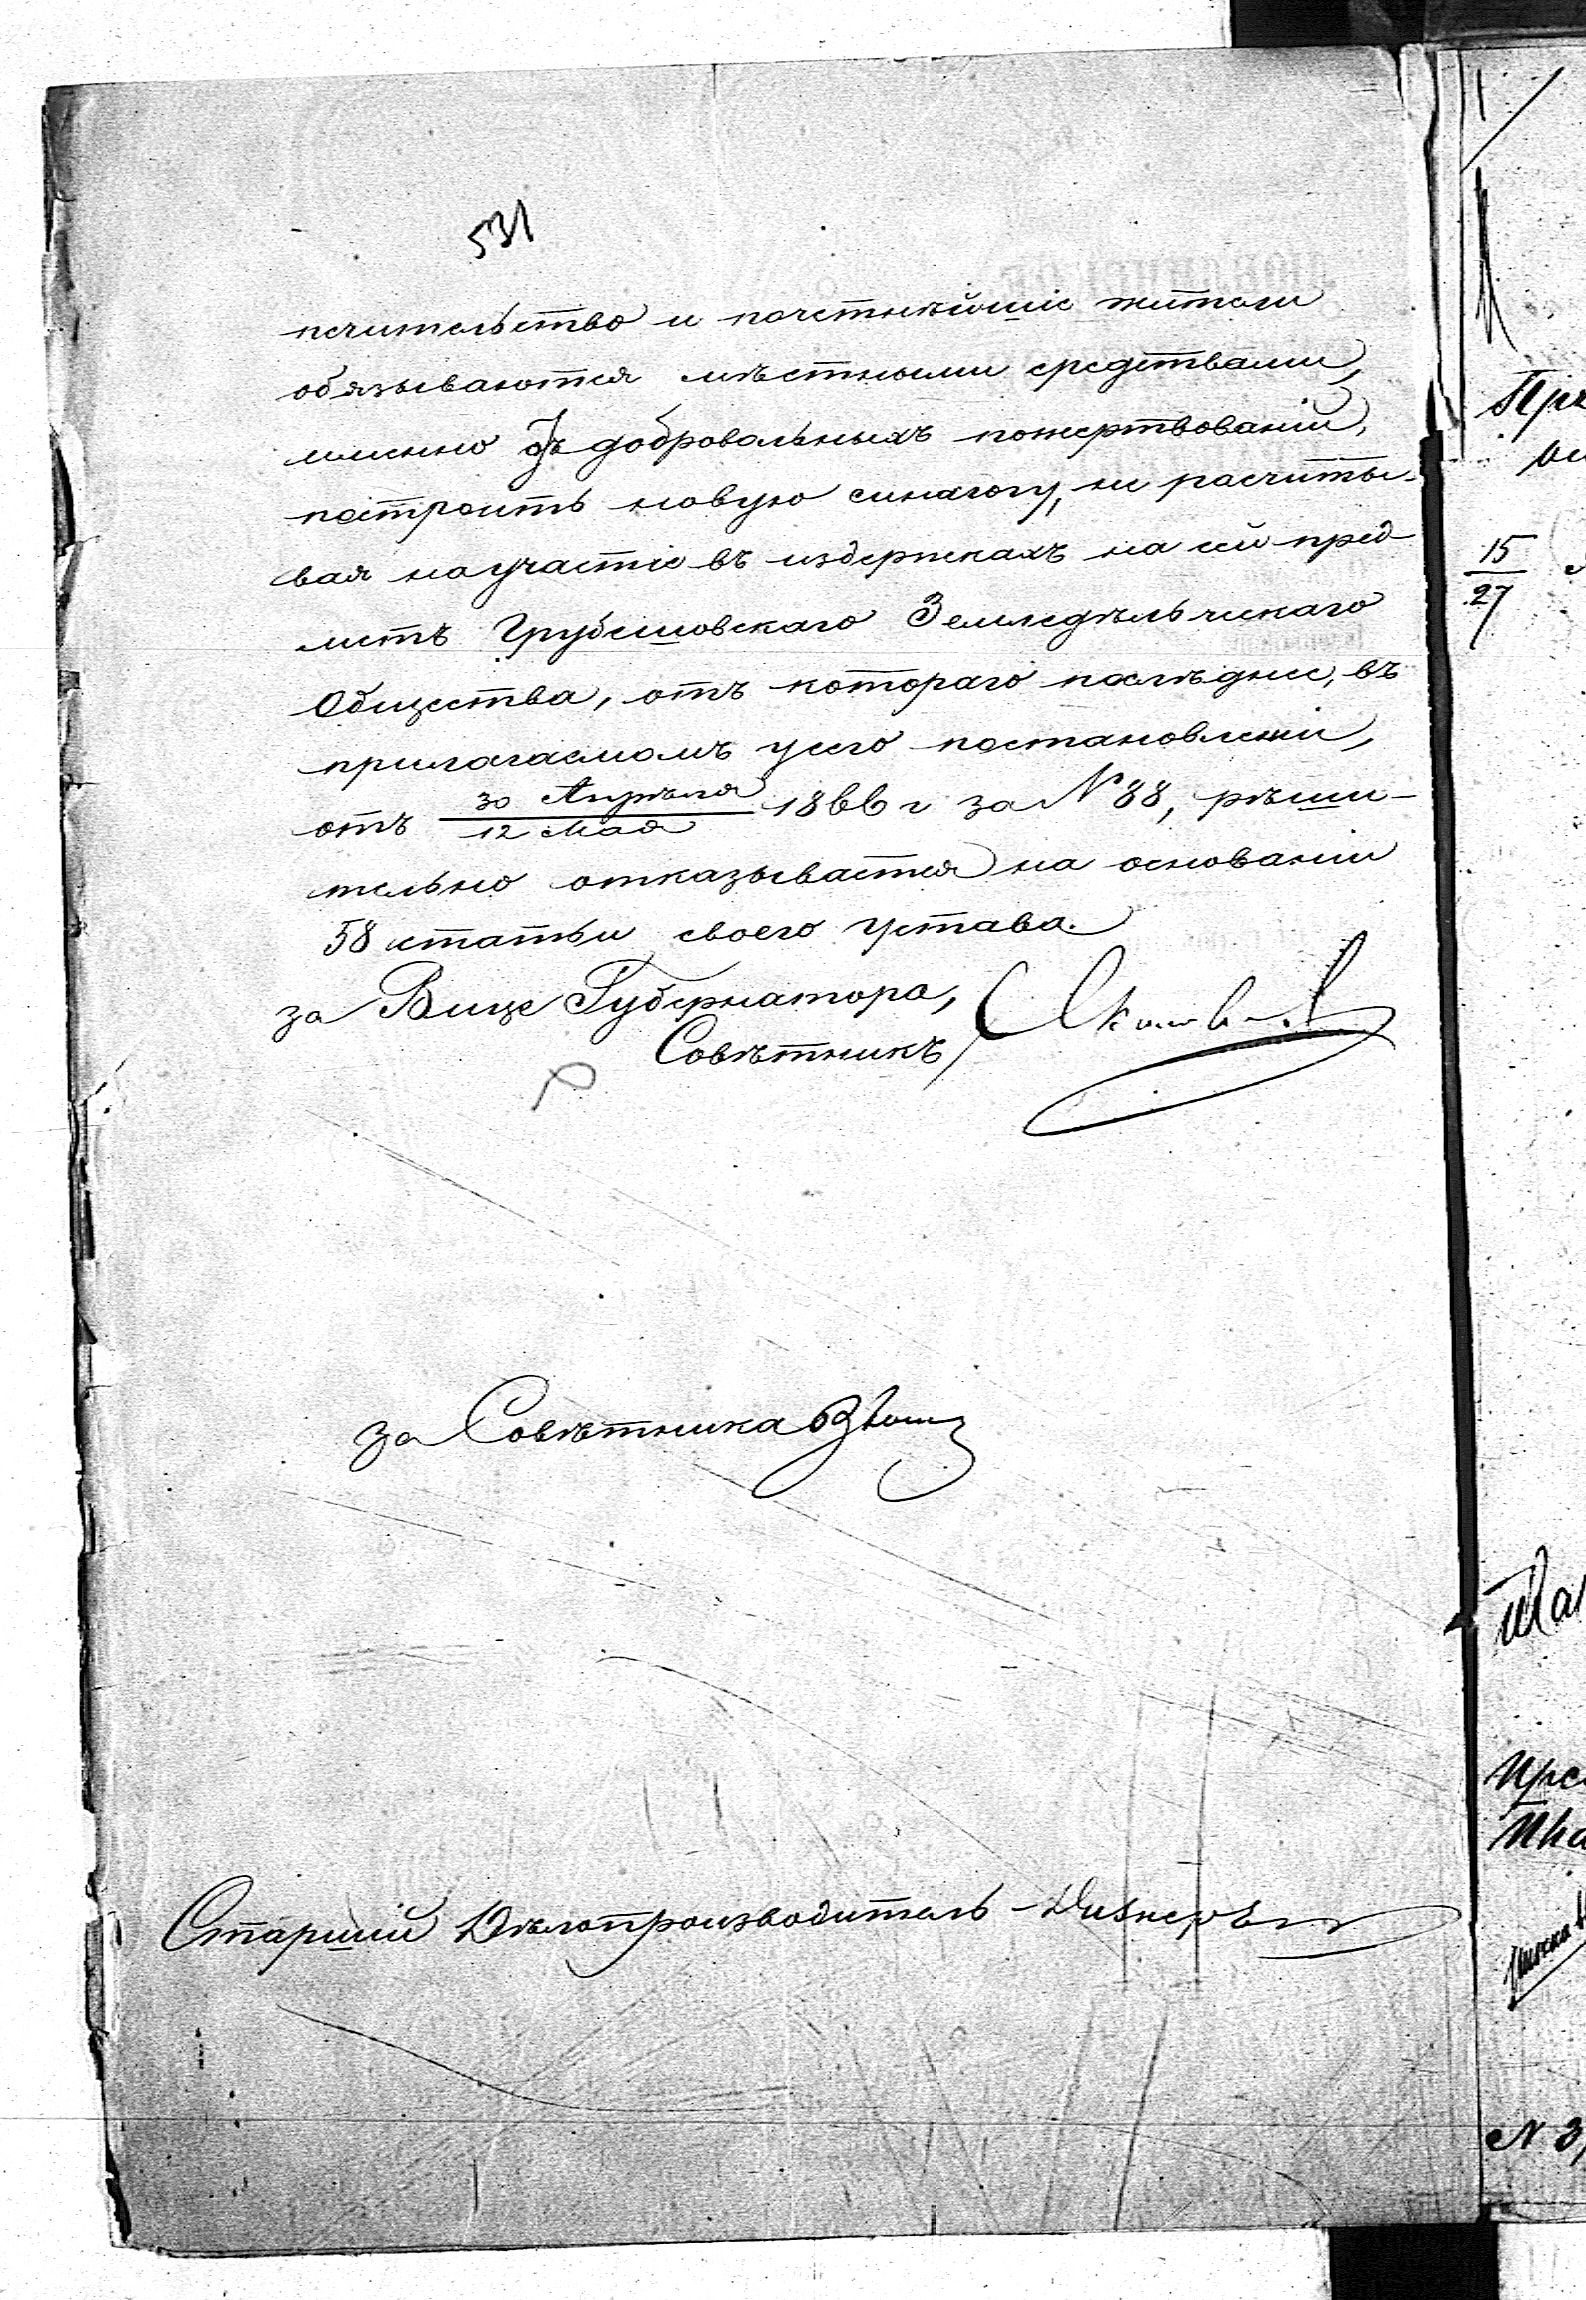 531
печительство и почетнѣйшіе жители
обязываются мѣстными средствами,
именно съ добровольныхъ пожертвованій,
построить новую синагогу, не расчиты-
вая на участіе въ издержкахъ на сей пред-
метъ Грубешовскаго Земледѣльческаго
Общества, отъ котораго послѣднее, въ
прилагаемомъ у сего постановленіи,
отъ 30 Апрѣля / 12 Мая 1866 г за № 88, рѣши-
тельно отказывается на основаніи
58 статьи своего устава.
за Вице Губернатора,
Совѣтникъ,
за Совѣтника
Старшій Дѣлопроизводитель
15
27